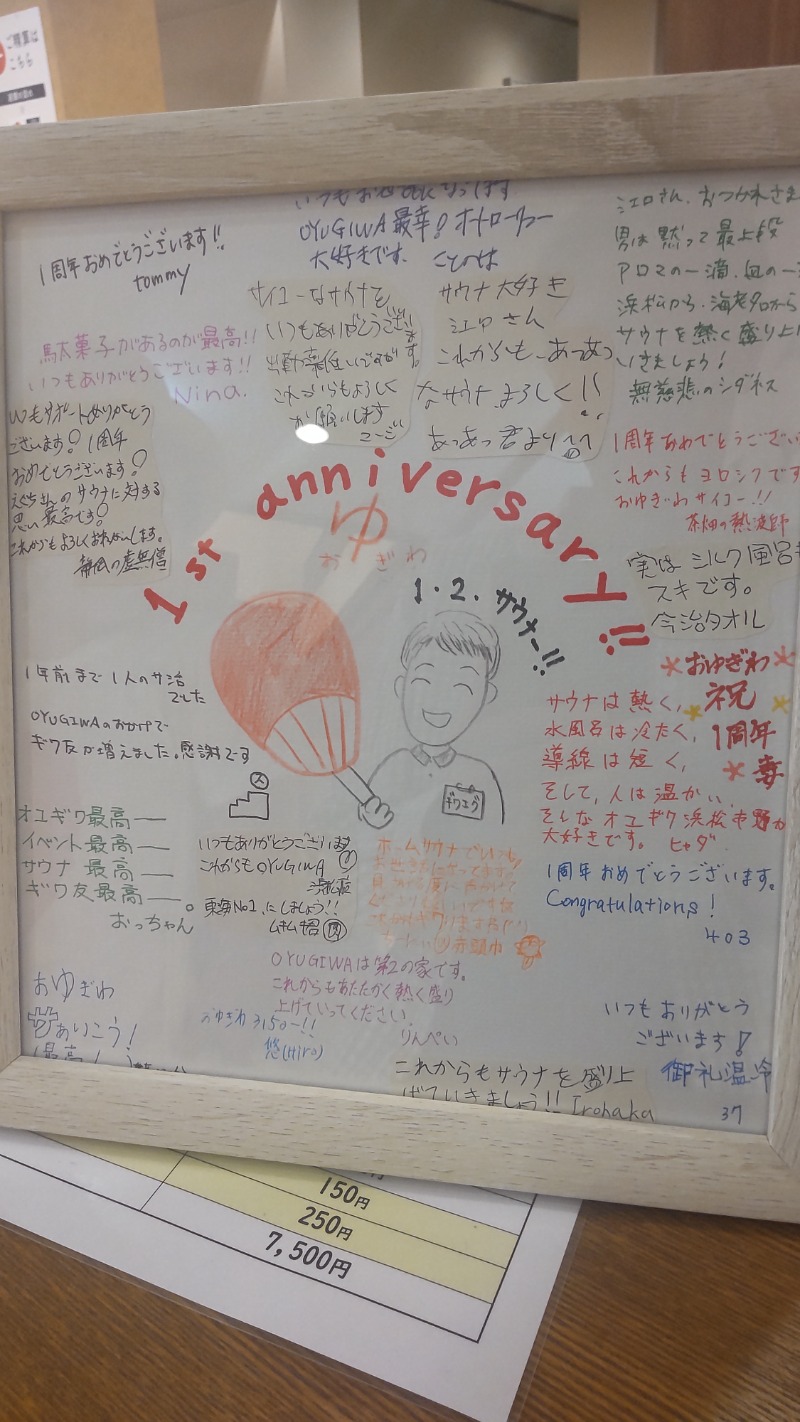 ご精算は
こちら
1周年おめでとうございます!!
tommy
駄菓子があるのが最高!!
いつもありがとうございます!!
Nina.
いつもサポートありがとう
ございます! 1周年
おめでとうございます!
えぐちさんのサウナに対する
思い最高です!
これからもよろしくお願いします。
静岡の虚無僧
OYUGIWA最幸! オートローリュー
大好きです。 ことのは
サイコーなサウナを
いつもありがとうございます。
これからもよろしく
お願いします
サウナ大好き
江口さん
これからも、あつあつ
なサウナよろしく!!
あつあつ君より
江口さん、おつかれさま
男は黙って最上段
アロマの一滴、血の一
浜松から、海老名から
サウナを熱く盛り上げ
いきましょう!
無慈悲のシダネス
1周年おめでとうござい
これからもヨロシクです
おゆぎわサイコー!!
茶畑の熱波師
実は シルク風呂も
スキです。
今治タオル
1st anniversary!!
ゆ
おぎわ
1・2・サウナー!!
ギワエグ
1年前まで1人のサ活
でした
OYUGIWAのおかげで
ギワ友が増えました。感謝です
オユギワ最高ー
イベント最高ー
サウナ 最高ー
ギワ友最高ー。
おっちゃん
いつもありがとうございます
これからもOYUGIWA
東海No1.にしましょう!!
*おゆぎわ*
祝
1周年
サウナは熱く、
水風呂は冷たく、
導線は短く、
そして、人は温かい、
そんなオユギワ浜松市野が
大好きです。 ヒャダ
1周年おめでとうございます。
Congratulations!
403
ホームサウナでいつも
赤頭巾
OYUGIWAは第2の家です。
これからもあたたかく熱く盛り
上げていってください。
りんぺい
おゆぎわ 3150〜!!
悠(Hiro)
おゆぎわ
ありこう!
いつもありがとう
ございます!
御礼温冷
37
これからもサウナを盛り上
げていきましょう!! Irohaka
150円
250円
7,500円